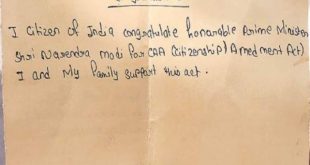 I Citizen of India congratulate honarable Prime Minister
Shri Narendra modi for CAA (Citizenship) Amedment Act)
I and My family support this act.